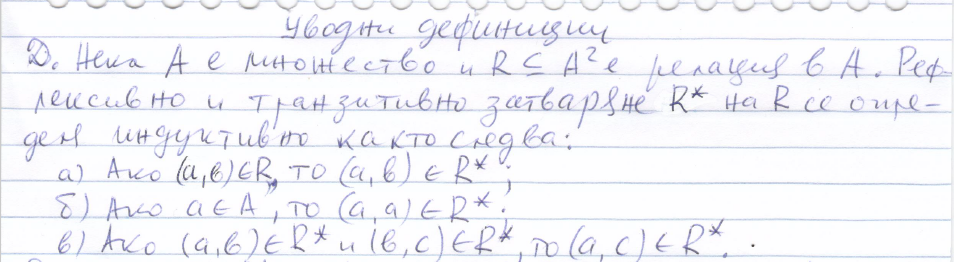 Уводни дефиниции
Д. Нека A е множество и R ⊆ A² е релация в A. Реф-
лексивно и транзитивно затваряне R* на R се опре-
деля индуктивно както следва:
а) Ако (a,b)∈R, то (a,b) ∈ R*;
б) Ако a∈A, то (a,a)∈R*;
в) Ако (a,b)∈R* и (b,c)∈R*, то (a,c)∈R*.